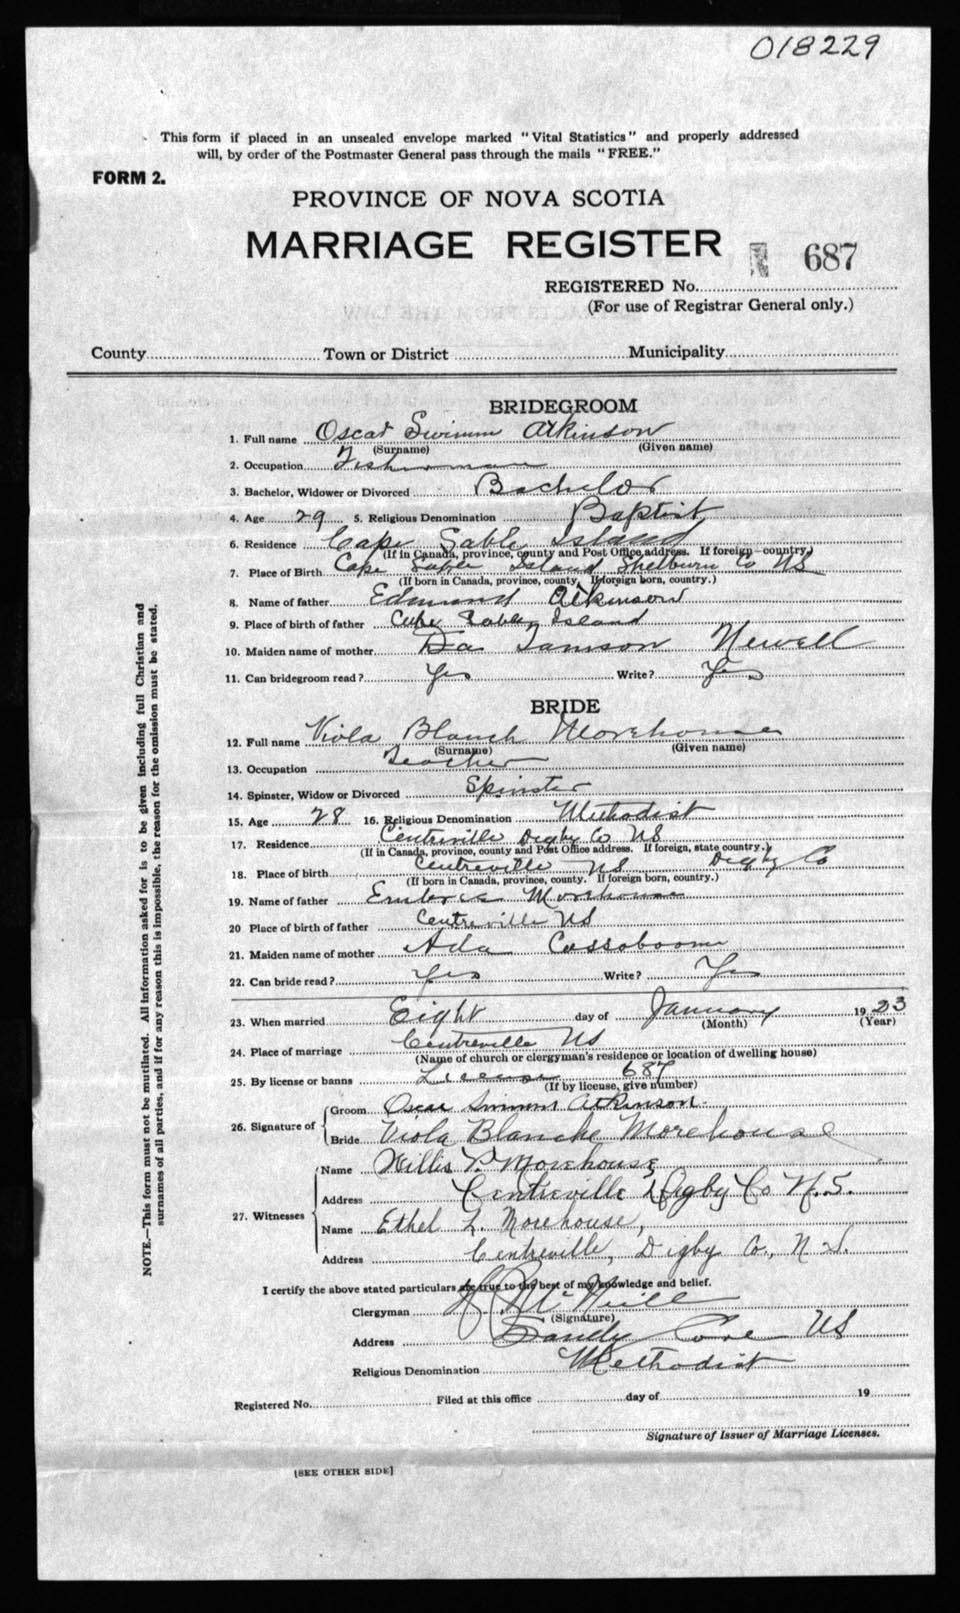 018229
This form if placed in an unsealed envelope marked "Vital Statistics" and properly addressed
will, by order of the Postmaster General pass through the mails "FREE."
FORM 2.
PROVINCE OF NOVA SCOTIA
MARRIAGE REGISTER
687
REGISTERED No.
(For use of Registrar General only.)
County Town or District Municipality
BRIDEGROOM
1. Full name Oscar Swimm Atkinson
(Surname) (Given name)
2. Occupation Fisherman
3. Bachelor, Widower or Divorced Bachelor
4. Age 29 5. Religious Denomination Baptist
6. Residence Cape Sable Island
(If in Canada, province, county and Post Office address. If foreign—country.)
7. Place of Birth Cape Sable Island Shelburn Co NS
(If born in Canada, province, county, If foreign born, country.)
8. Name of father Edmund Atkinson
9. Place of birth of father Cape Sable Island
10. Maiden name of mother Tamson Newell
11. Can bridegroom read? Yes Write? Yes
BRIDE
12. Full name Viola Blanch Morehouse
(Surname) (Given name)
13. Occupation Teacher
14. Spinster, Widow or Divorced Spinster
15. Age 28 16. Religious Denomination Methodist
17. Residence Centreville Digby Co NS
(If in Canada, province, county and Post Office address. If foreign, state country.)
18. Place of birth Centreville NS Digby Co
(If born in Canada, province, county. If foreign born, country.)
19. Name of father Morehouse
20 Place of birth of father Centreville NS
21. Maiden name of mother Ada Cossaboom
22. Can bride read? Yes Write? Yes
23. When married Eight day of January 1923
(Month) (Year)
24. Place of marriage Centreville NS
(Name of church or clergyman's residence or location of dwelling house)
25. By license or banns License 687
(If by license, give number)
26. Signature of
Groom Oscar Swimm Atkinson
Bride Viola Blanche Morehouse
27. Witnesses
Name Willis P. Morehouse
Address Centreville Digby Co N.S.
Name Ethel L. Morehouse,
Address Centreville, Digby Co., N.S.
I certify the above stated particulars are true to the best of my knowledge and belief.
Clergyman McNeill
(Signature)
Address Sandy Cove NS
Religious Denomination Methodist
Registered No. Filed at this office day of 19
Signature of Issuer of Marriage Licenses.
[SEE OTHER SIDE]
NOTE.—This form must not be mutilated. All information asked for is to be given including full Christian and
surnames of all parties, and if for any reason this is impossible, the reason for the omission must be stated.